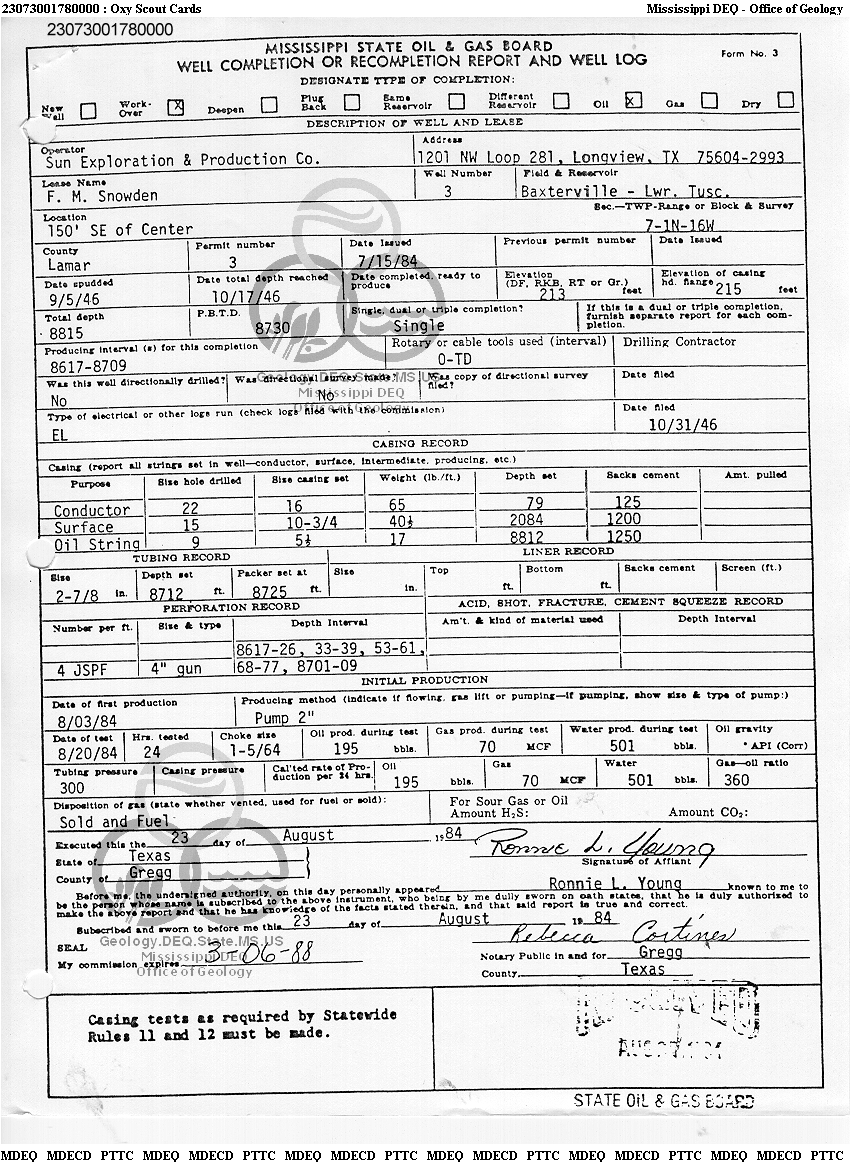 23073001780000 : Oxy Scout Cards Mississippi DEQ - Office of Geology
23073001780000
MISSISSIPPI STATE OIL & GAS BOARD
WELL COMPLETION OR RECOMPLETION REPORT AND WELL LOG Form No. 3
DESIGNATE TYPE OF COMPLETION:
New Well Work-Over X Deepen Plug Back Same Reservoir Different Reservoir Oil X Gas Dry
DESCRIPTION OF WELL AND LEASE
Operator Address
Sun Exploration & Production Co. 1201 NW Loop 281, Longview, TX 75604-2993
Lease Name Well Number Field & Reservoir
F. M. Snowden 3 Baxterville - Lwr. Tusc.
Location Sec.—TWP-Range or Block & Survey
150' SE of Center 7-1N-16W
County Permit number Date Issued Previous permit number Date Issued
Lamar 3 7/15/84
Date spudded Date total depth reached Date completed, ready to produce Elevation (DF, RKB, RT or Gr.) Elevation of casing hd. flange
9/5/46 10/17/46 213 feet 215 feet
Total depth P.B.T.D. Single, dual or triple completion? If this is a dual or triple completion, furnish separate report for each completion.
8815 8730 Single
Producing interval (s) for this completion Rotary or cable tools used (interval) Drilling Contractor
8617-8709 0-TD
Was this well directionally drilled? Was directional survey made? Was copy of directional survey filed? Date filed
No No
Geology.DEQ.State.MS.US
Mississippi DEQ
Office of Geology
Type of electrical or other logs run (check logs filed with the commission) Date filed
EL 10/31/46
CASING RECORD
Casing (report all strings set in well—conductor, surface, intermediate, producing, etc.)
Purpose Size hole drilled Size casing set Weight (lb./ft.) Depth set Sacks cement Amt. pulled
Conductor 22 16 65 79 125
Surface 15 10-3/4 40½ 2084 1200
Oil String 9 5½ 17 8812 1250
TUBING RECORD LINER RECORD
Size Depth set Packer set at Size Top Bottom Sacks cement Screen (ft.)
2-7/8 in. 8712 ft. 8725 ft. in. ft. ft.
PERFORATION RECORD ACID, SHOT, FRACTURE, CEMENT SQUEEZE RECORD
Number per ft. Size & type Depth Interval Am't. & kind of material used Depth Interval
8617-26, 33-39, 53-61,
4 JSPF 4" gun 68-77, 8701-09
INITIAL PRODUCTION
Date of first production Producing method (indicate if flowing, gas lift or pumping—if pumping, show size & type of pump:)
8/03/84 Pump 2"
Date of test Hrs. tested Choke size Oil prod. during test Gas prod. during test Water prod. during test Oil gravity
8/20/84 24 1-5/64 195 bbls. 70 MCF 501 bbls. ° API (Corr)
Tubing pressure Casing pressure Cal'ted rate of Production per 24 hrs. Oil Gas Water Gas—oil ratio
300 195 bbls. 70 MCF 501 bbls. 360
Disposition of gas (state whether vented, used for fuel or sold): For Sour Gas or Oil
Sold and Fuel Amount H2S: Amount CO2:
Executed this the 23 day of August 1984 Ronnie L. Young
State of Texas Signature of Affiant
County of Gregg
Before me, the undersigned authority, on this day personally appeared Ronnie L. Young known to me to
be the person whose name is subscribed to the above instrument, who being by me dully sworn on oath states, that he is duly authorized to
make the above report and that he has knowledge of the facts stated therein, and that said report is true and correct.
Subscribed and sworn to before me this 23 day of August 1984
Geology.DEQ.State.MS.US Rebecca Cortines
SEAL Mississippi DEQ Notary Public in and for Gregg
My commission expires 3-06-88 County Texas
Office of Geology
Casing tests as required by Statewide
Rules 11 and 12 must be made.
STATE OIL & GAS BOARD
MDEQ MDECD PTTC MDEQ MDECD PTTC MDEQ MDECD PTTC MDEQ MDECD PTTC MDEQ MDECD PTTC MDEQ MDECD PTTC